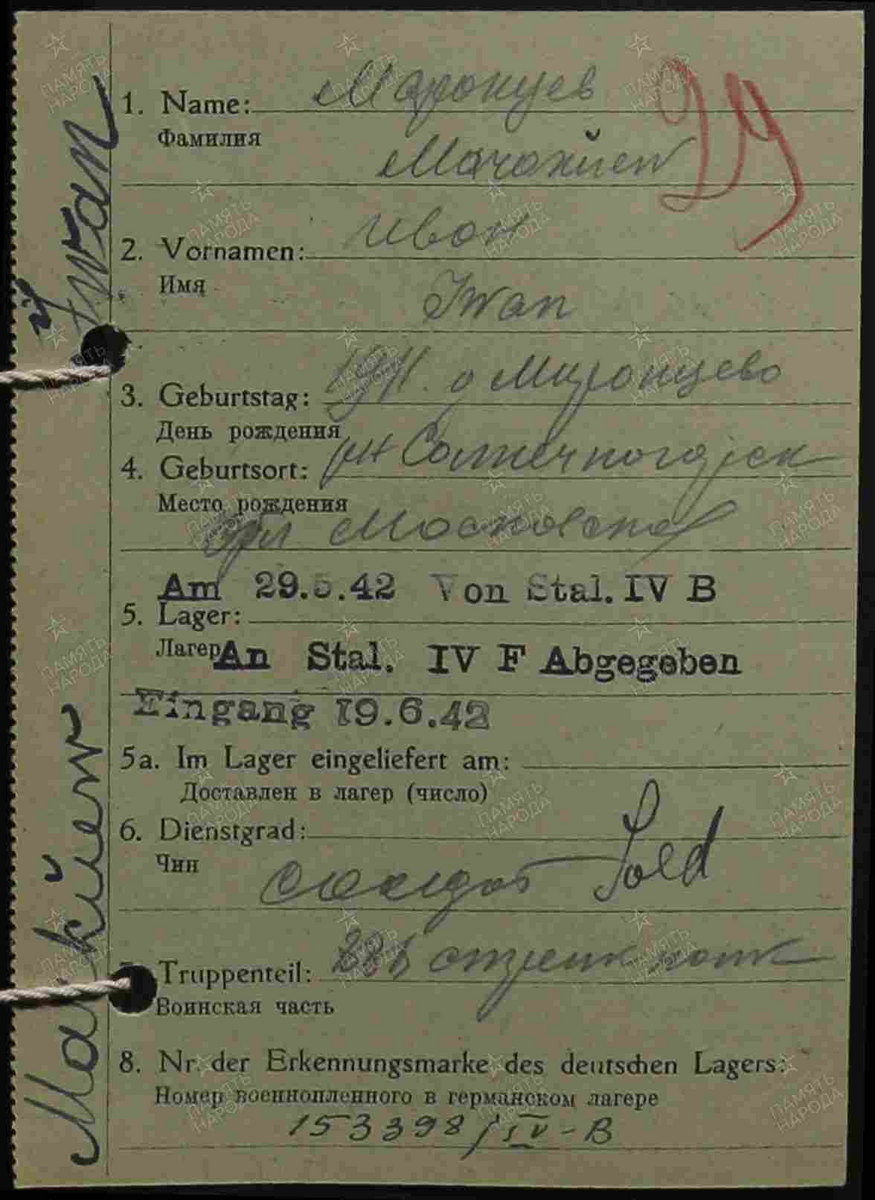 1. Name: Маронцев
Фамилия
2. Vornamen: Иван
Имя
Iwan
3. Geburtstag: 1911. д Миронцево
День рождения
4. Geburtsort: рн Солнечногорск
Место рождения
обл Московская
Am 29.5.42 Von Stal. IV B
5. Lager:
Лагер An Stal. IV F Abgegeben
Eingang 19.6.42
5a. Im Lager eingeliefert am:
Доставлен в лагер (число)
6. Dienstgrad:
Чин
солдат Sold
Truppenteil: стрелк полк
Воинская часть
8. Nr. der Erkennungsmarke des deutschen Lagers:
Номер военнопленного в германском лагере
153398/IV-B
Iwan
29
ПАМЯТЬ НАРОДА